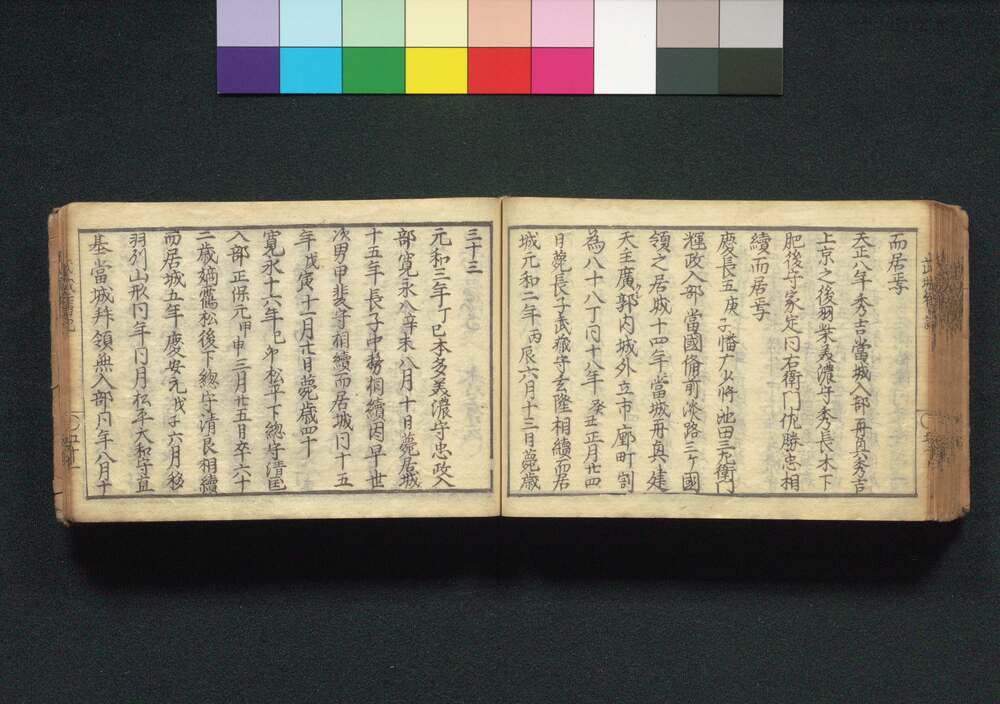 而居焉
天正八年秀吉當城入部再興秀吉
上京之後羽柴美濃守秀長木下
肥後守家定同右衛門佐勝忠相
續而居焉
慶長五庚子幡广少將池田三左衛門
輝政入部當國備前淡路三ケ國
領之居城十四年當城再興建
天主廣郭内城外立市廊町割
為八十八丁同十八年癸丑正月廿四
日薨長子武蔵守玄隆相續而居
城元和二年丙辰六月十三日薨歳
三十三
元和三年丁巳本多美濃守忠政入
部寛永八辛未八月十日薨居城
十五年長子中務相續因早世
次男甲斐守相續而居城同十五
年戊寅十一月正日薨歳四十
寛永十六年己卯松平下總守清匡
入部正保元甲申三月廿五日卒六十
二歳嫡鶴松後下總守清良相續
而居城五年慶安元戊子六月移
羽刕山形同年同月松平大和守直
基當城拜領無入部同年八月十